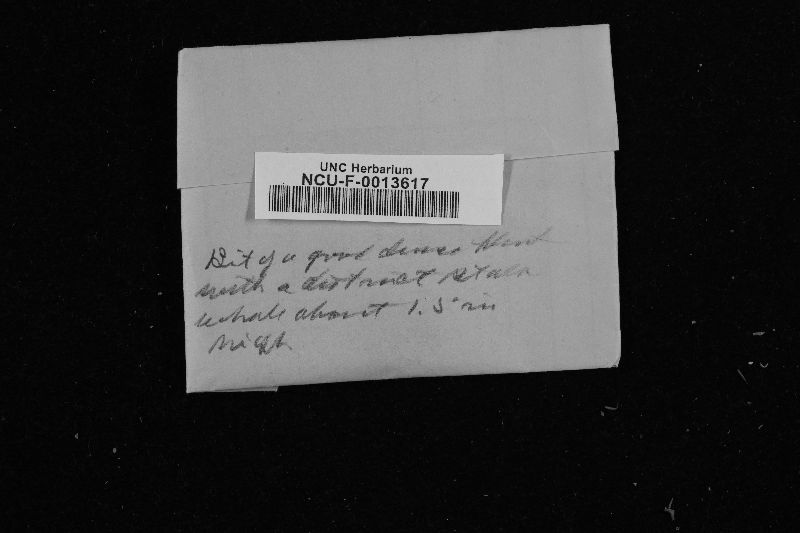 UNC Herbarium
NCU-F-0013617
Bit of a good dense plant
with a distinct stalk
whole about 1.5 in
high